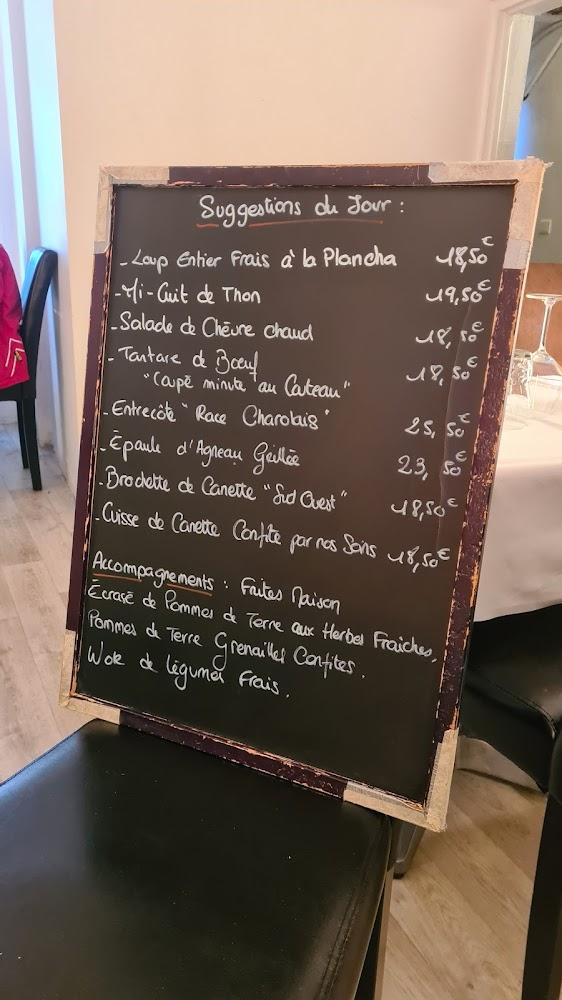 Suggestions du Jour :
- Loup Entier Frais à la Plancha 18,50€
- Mi-Cuit de Thon 19,50€
- Salade de Chèvre chaud 18,50€
- Tartare de Bœuf 18,50€
"Coupé minute au Couteau"
- Entrecôte "Race Charolais" 25,50€
- Épaule d'Agneau Grillée 23,50€
- Brochette de Canette "Sud Ouest" 18,50€
- Cuisse de Canette Confite par nos Soins 18,50€
Accompagnements : Faites Maison
Écrasé de Pommes de Terre aux Herbes Fraîches,
Pommes de Terre Grenailles Confites.
Wok de légumes Frais.